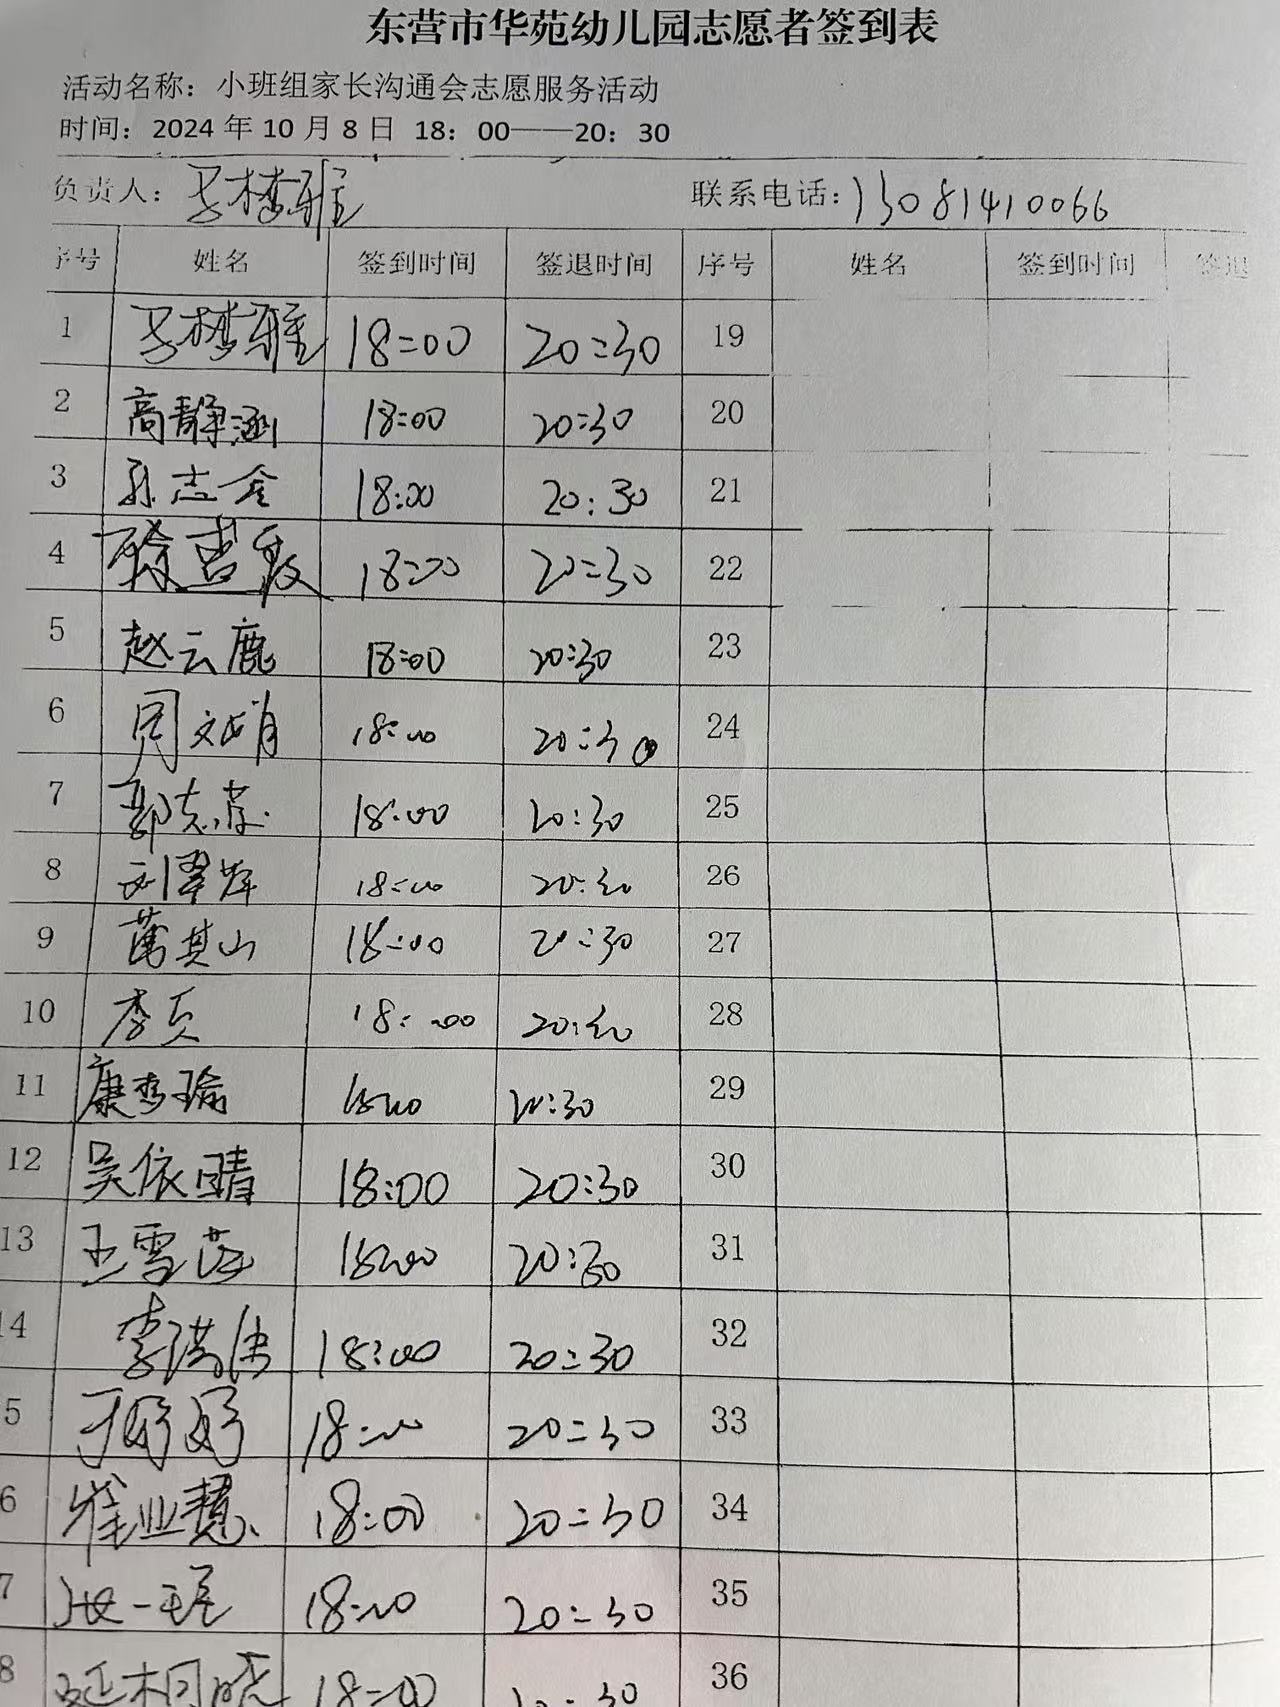 东营市华苑幼儿园志愿者签到表
活动名称：小班组家长沟通会志愿服务活动
时间：2024 年 10 月 8 日 18：00——20：30
负责人： 梦雅 联系电话：13081410066
序号 姓名 签到时间 签退时间 序号 姓名 签到时间 签退
1 梦雅 18:00 20:30 19
2 高静涵 18:00 20:30 20
3 孙志金 18:00 20:30 21
4 18:00 20:30 22
5 赵云鹿 18:00 20:30 23
6 周文娟 18:00 20:30 24
7 郭志萍 18:00 20:30 25
8 刘翠苹 18:00 20:30 26
9 蒲其山 18:00 20:30 27
10 李贞 18:00 20:30 28
11 康秀瑜 18:00 20:30 29
12 吴依晴 18:00 20:30 30
13 王雪莎 18:00 20:30 31
14 李洪 18:00 20:30 32
5 于婷婷 18:00 20:30 33
6 崔业慧 18:00 20:30 34
7 张一珺 18:00 20:30 35
8 延相晓 18:00 20:30 36